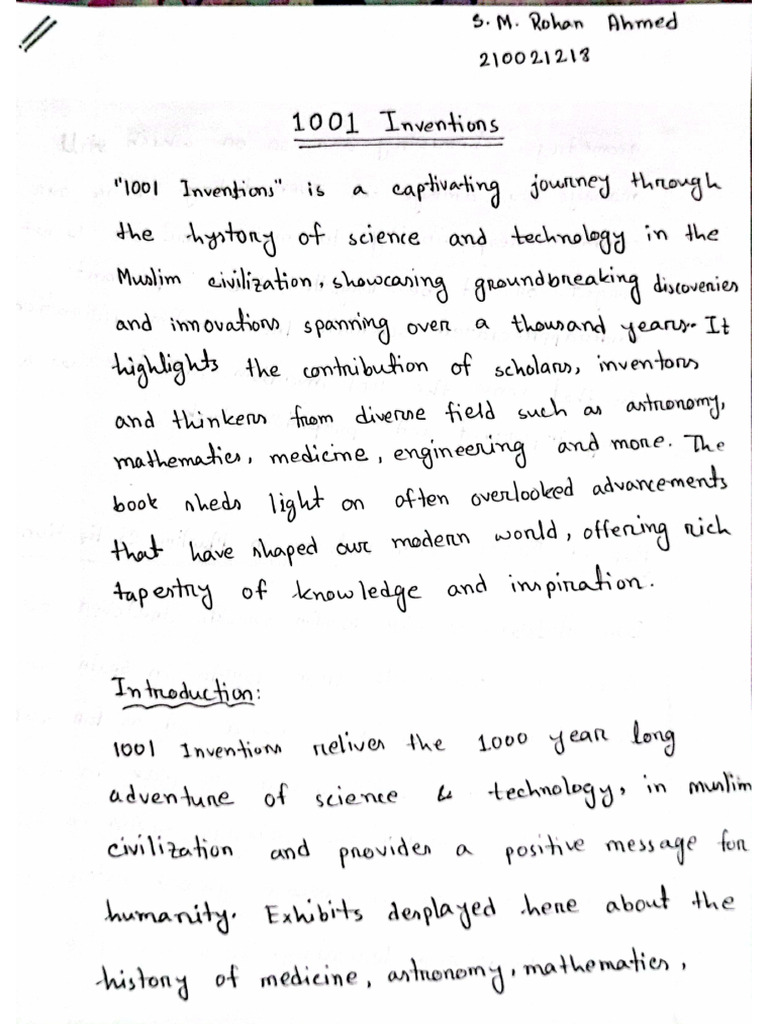 S. M. Rohan Ahmed
210021218
1001 Inventions
"1001 Inventions" is a captivating journey through
the hystory of science and technology in the
Muslim civilization, showcasing groundbreaking discoveries
and innovations spanning over a thousand years. It
highlights the contribution of scholars, inventors
and thinkers from diverse field such as astronomy,
mathematics, medicine, engineering and more. The
book sheds light on often overlooked advancements
that have shaped our modern world, offering rich
tapestry of knowledge and inspiration.
Introduction:
1001 Inventions relives the 1000 year long
adventure of science & technology, in muslim
civilization and provides a positive message for
humanity. Exhibits desplayed here about the
history of medicine, astronomy, mathematics,